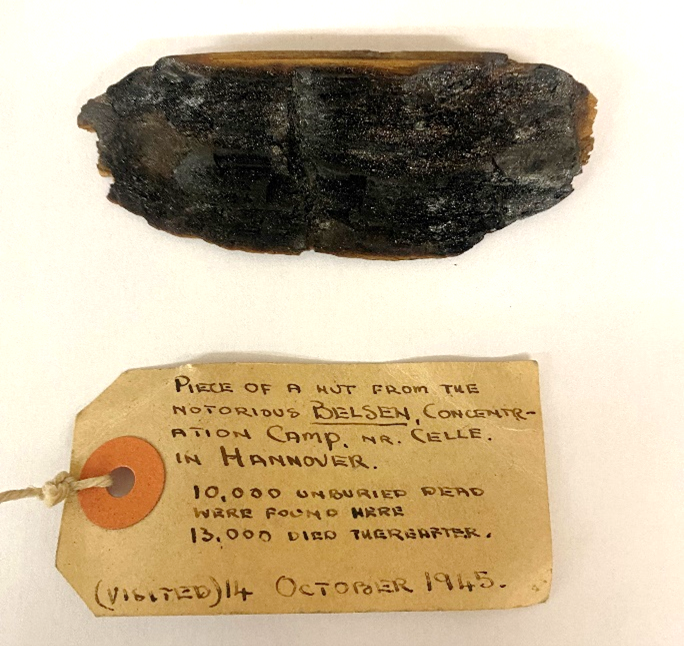 PIECE OF A HUT FROM THE
NOTORIOUS BELSEN, CONCENTR-
ATION CAMP. NR. CELLE.
IN HANNOVER.
10,000 UNBURIED DEAD
WERE FOUND HERE
13,000 DIED THEREAFTER.
(VISITED) 14 OCTOBER 1945.